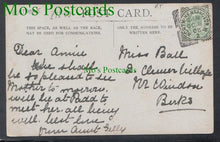 Mo's Postcards
CARD.
THIS SPACE, AS WELL AS THE BACK,
MAY BE USED FOR COMMUNICATIONS.
WRITTEN HERE.
Dear Annie
We shall
be so pleased to see
Mother to morrow
will be at Padd to
meet her all being
well best love
from Aunt Lilly
Miss Ball
2 Clewer
Nr Windsor
Berks
Mo's Postcards